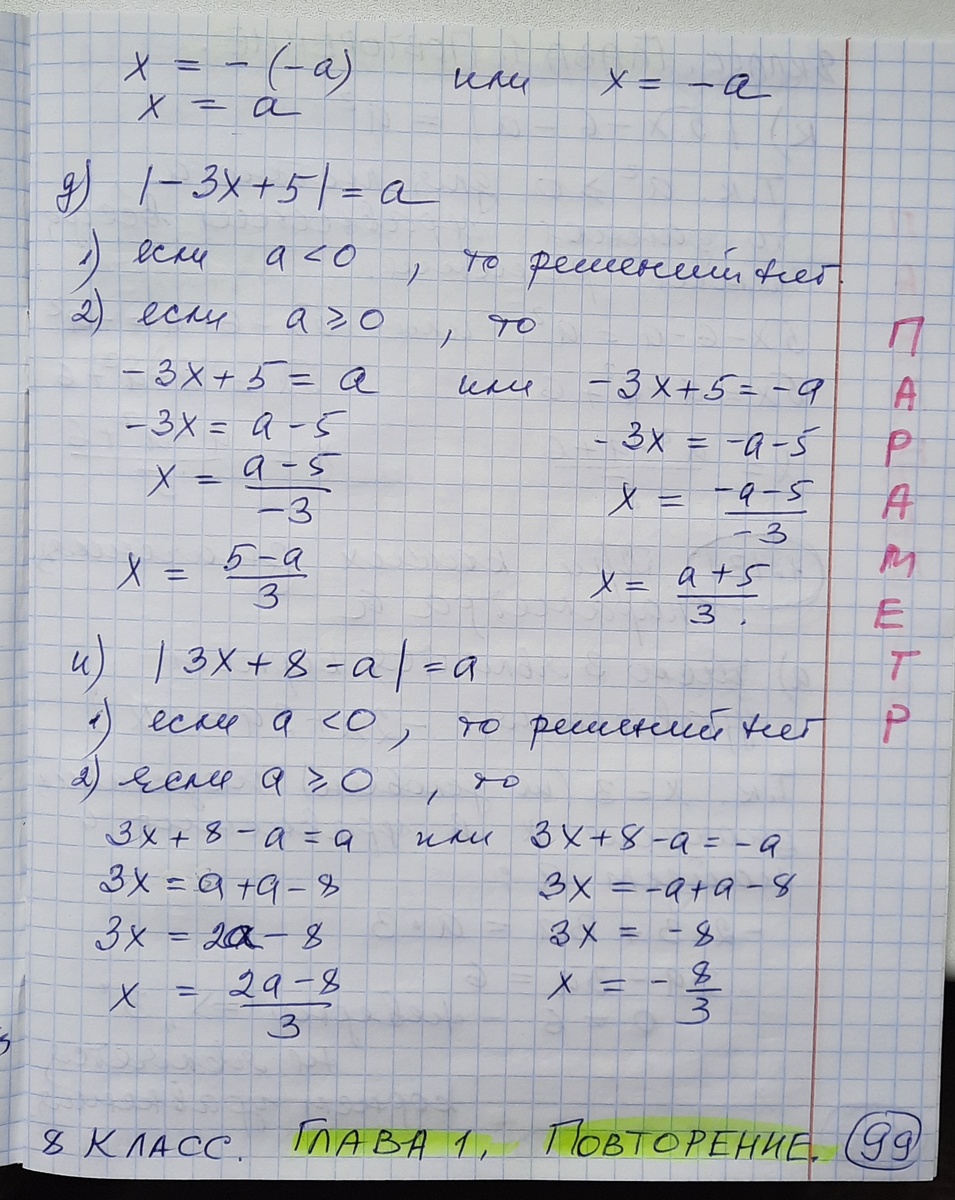 x = - (-a) или x = -a
x = a
д) |-3x+5| = a
1) если a < 0, то решений нет.
2) если a ≥ 0, то
-3x+5 = a или -3x+5 = -a
-3x = a - 5 -3x = -a-5
x = \frac{a-5}{-3} x = \frac{-a-5}{-3}
x = \frac{5-a}{3} x = \frac{a+5}{3}.
и) |3x+8-a| = a
1) если a < 0, то решений нет
2) если a ≥ 0, то
3x+8-a = a или 3x+8-a = -a
3x = a+a-8 3x = -a+a-8
3x = 2a-8 3x = -8
x = \frac{2a-8}{3} x = -\frac{8}{3}
ПАРАМЕТР
8 КЛАСС. ГЛАВА 1, ПОВТОРЕНИЕ. 99